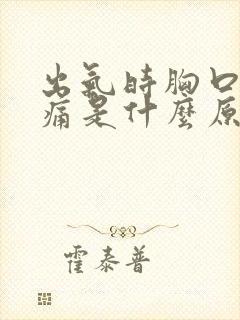 出氣時胸口
痛是什麼原
霍泰普